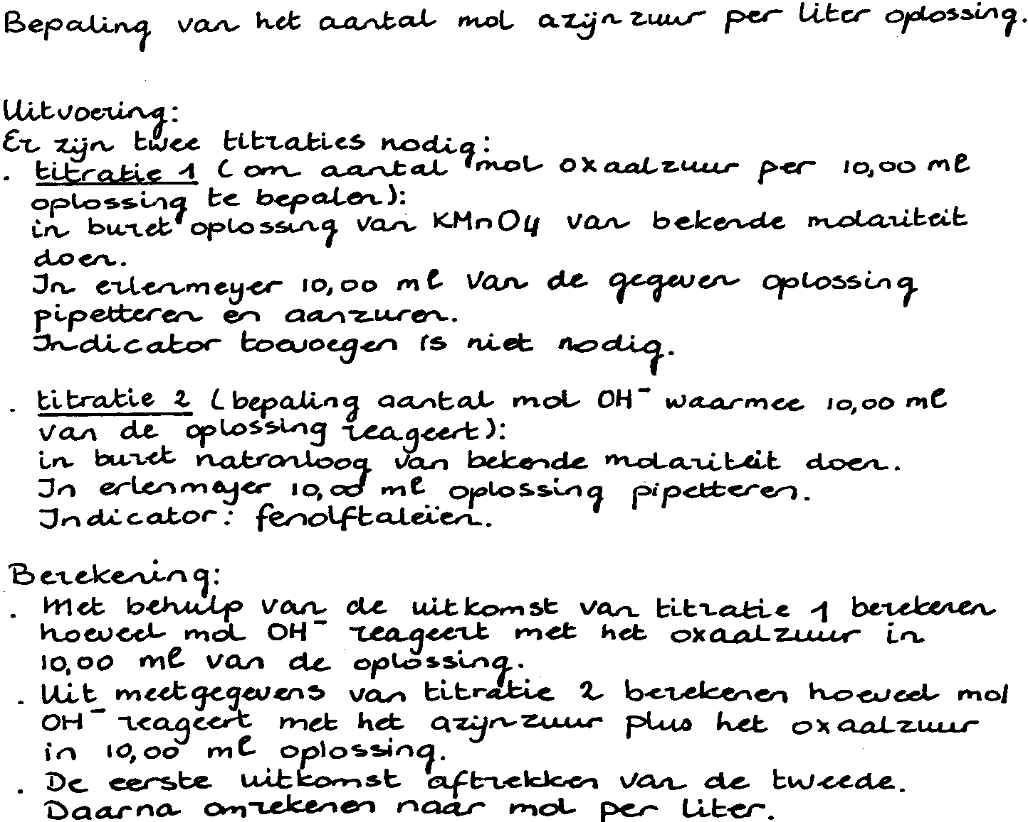 Bepaling van het aantal mol azijnzuur per liter oplossing.
Uitvoering:
Er zijn twee titraties nodig:
. titratie 1 (om aantal mol oxaalzuur per 10,00 ml
oplossing te bepalen):
in buret oplossing van KMnO4 van bekende molariteit
doen.
In erlenmeyer 10,00 ml van de gegeven oplossing
pipetteren en aanzuren.
Indicator toevoegen is niet nodig.
. titratie 2 (bepaling aantal mol OH⁻ waarmee 10,00 ml
van de oplossing reageert):
in buret natronloog van bekende molariteit doen.
In erlenmejer 10,00 ml oplossing pipetteren.
Indicator: fenolftaleïen.
Berekening:
. Met behulp van de uitkomst van titratie 1 berekenen
hoeveel mol OH⁻ reageert met het oxaalzuur in
10,00 ml van de oplossing.
. Uit meetgegevens van titratie 2 berekenen hoeveel mol
OH⁻ reageert met het azijnzuur plus het oxaalzuur
in 10,00 ml oplossing.
. De eerste uitkomst aftrekken van de tweede.
Daarna omrekenen naar mol per liter.